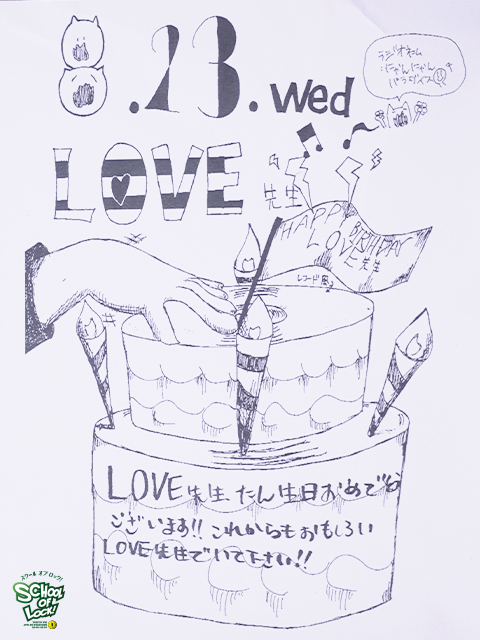 8.23.Wed
ラジオネーム
:にゃんにゃん
パラダイス
LOVE
先生
HAPPY
BIRTHDAY
LOVE先生
レコード風
LOVE先生たん生日おめでとう
ございます!!これからもおもしろい
LOVE先生でいて下さい!!
スクール オブ ロック!
SCHOOL
OF
LOCK!